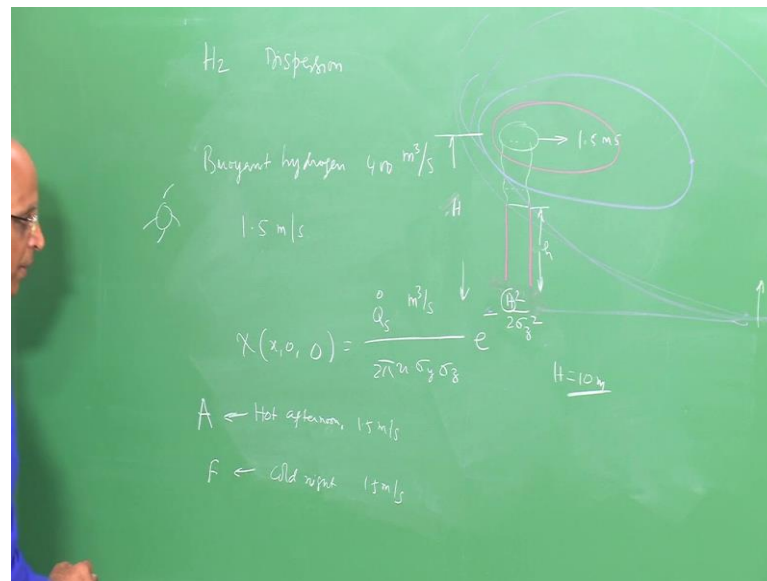 H₂ Dispersion
Buoyant hydrogen 400 m³/s
1.5 m/s
→ 1.5 m/s
H
h
χ(x,0,0) = Q̇s m³/s / 2πu σy σz e -H²/2σz²
H=10m
A ← Hot afternoon, 1.5 m/s
F ← Cold night 1.5 m/s